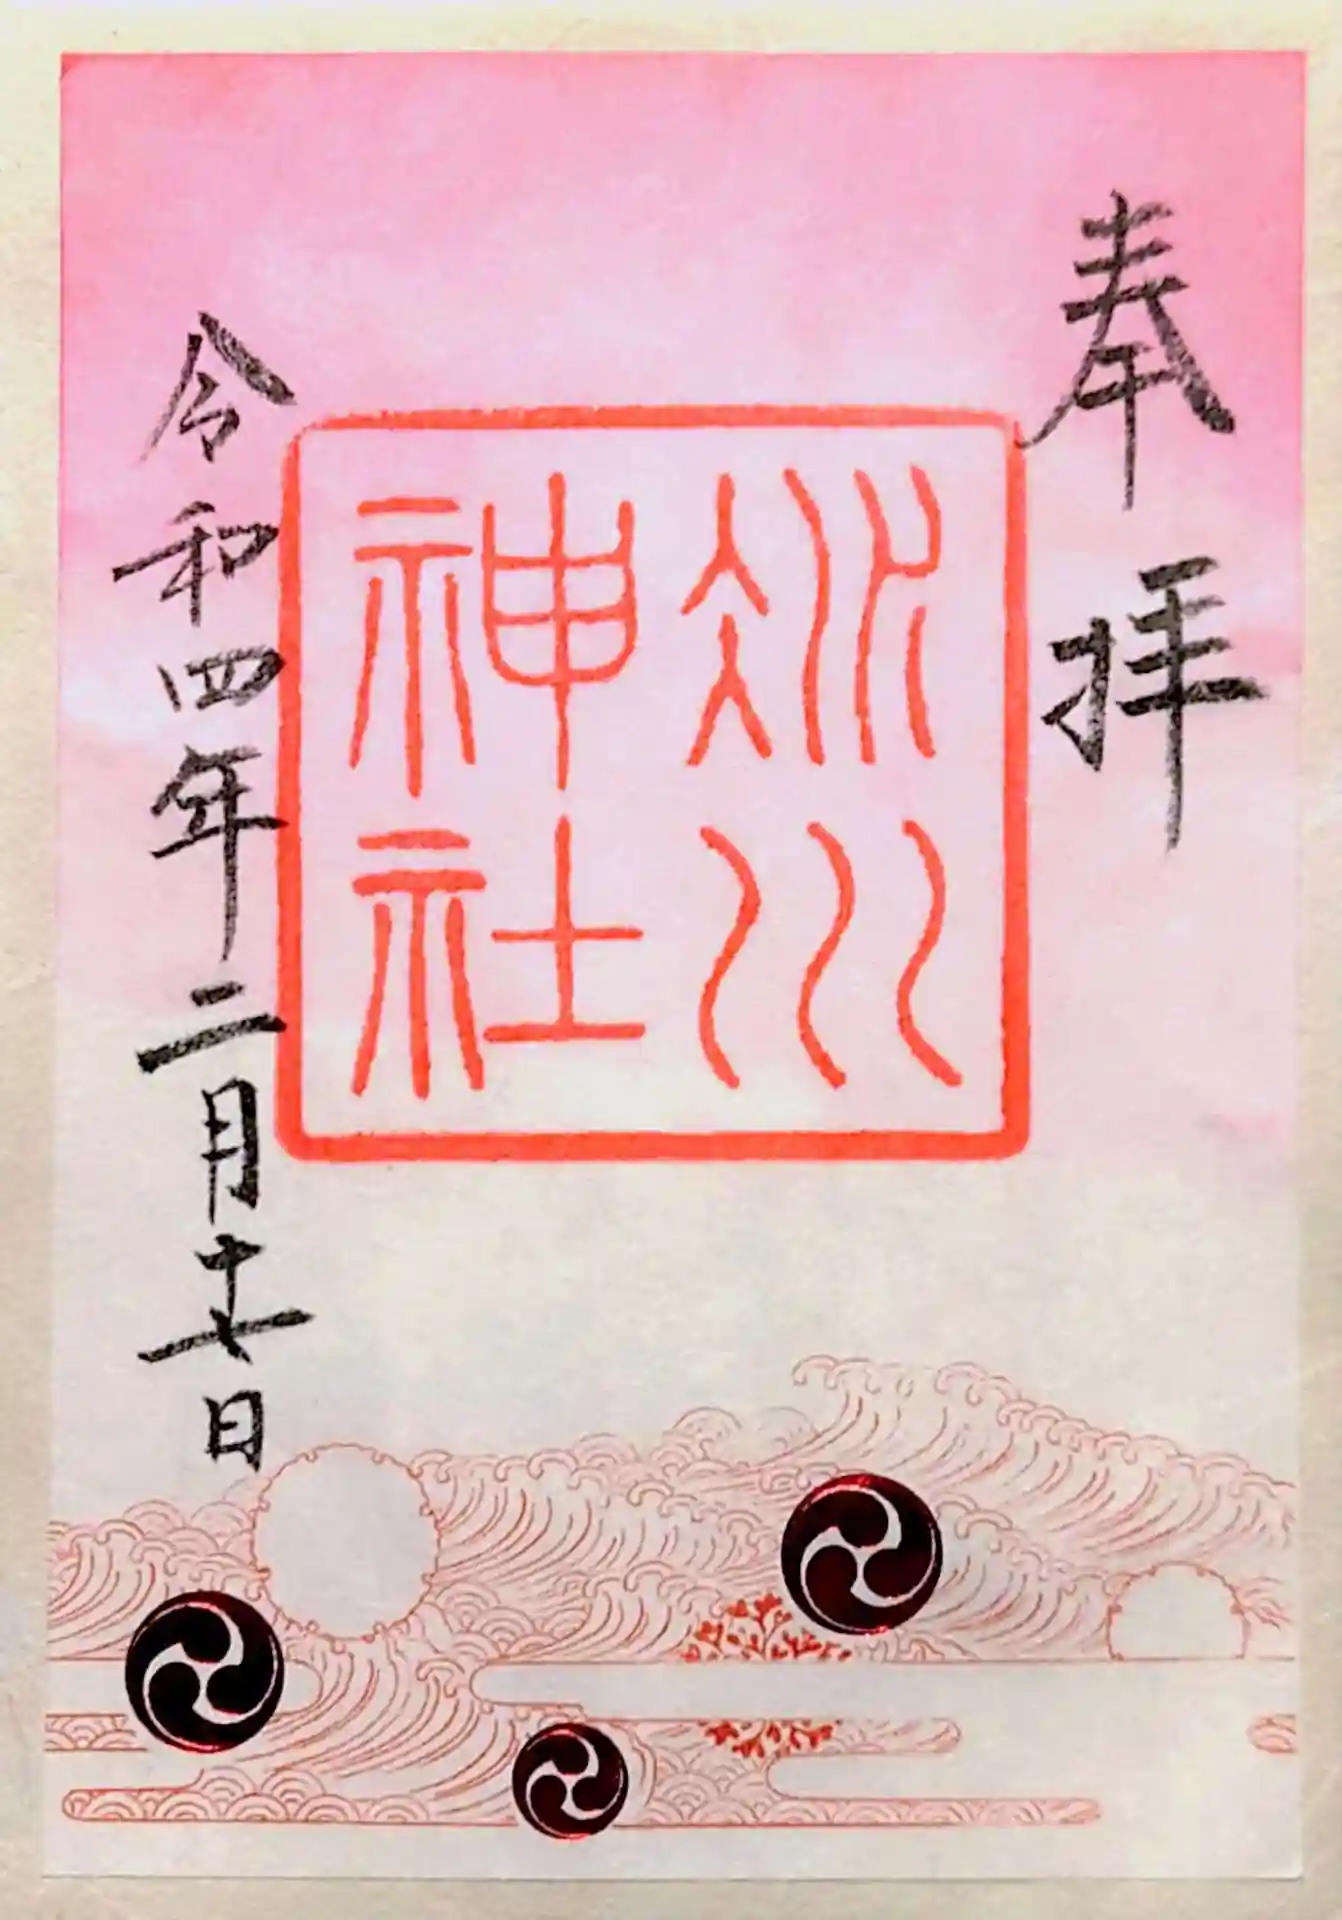 奉拝
冰川
神社
令和四年二月十七日